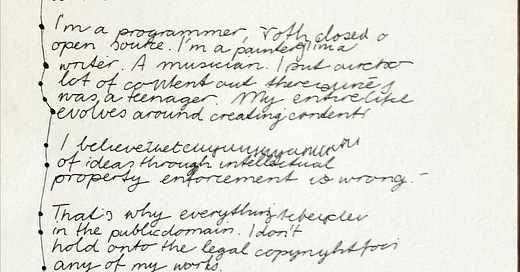 I'm a programmer, both closed &
open source. I'm a painter, I'm a
writer. A musician. I put out a
lot of content out there since
was a teenager. My entire life
evolves around creating content
I believe
of ideas through intellectual
property enforcement is wrong.
That's why everything
in the public domain. I don't
hold onto the legal copyright for
any of my works.